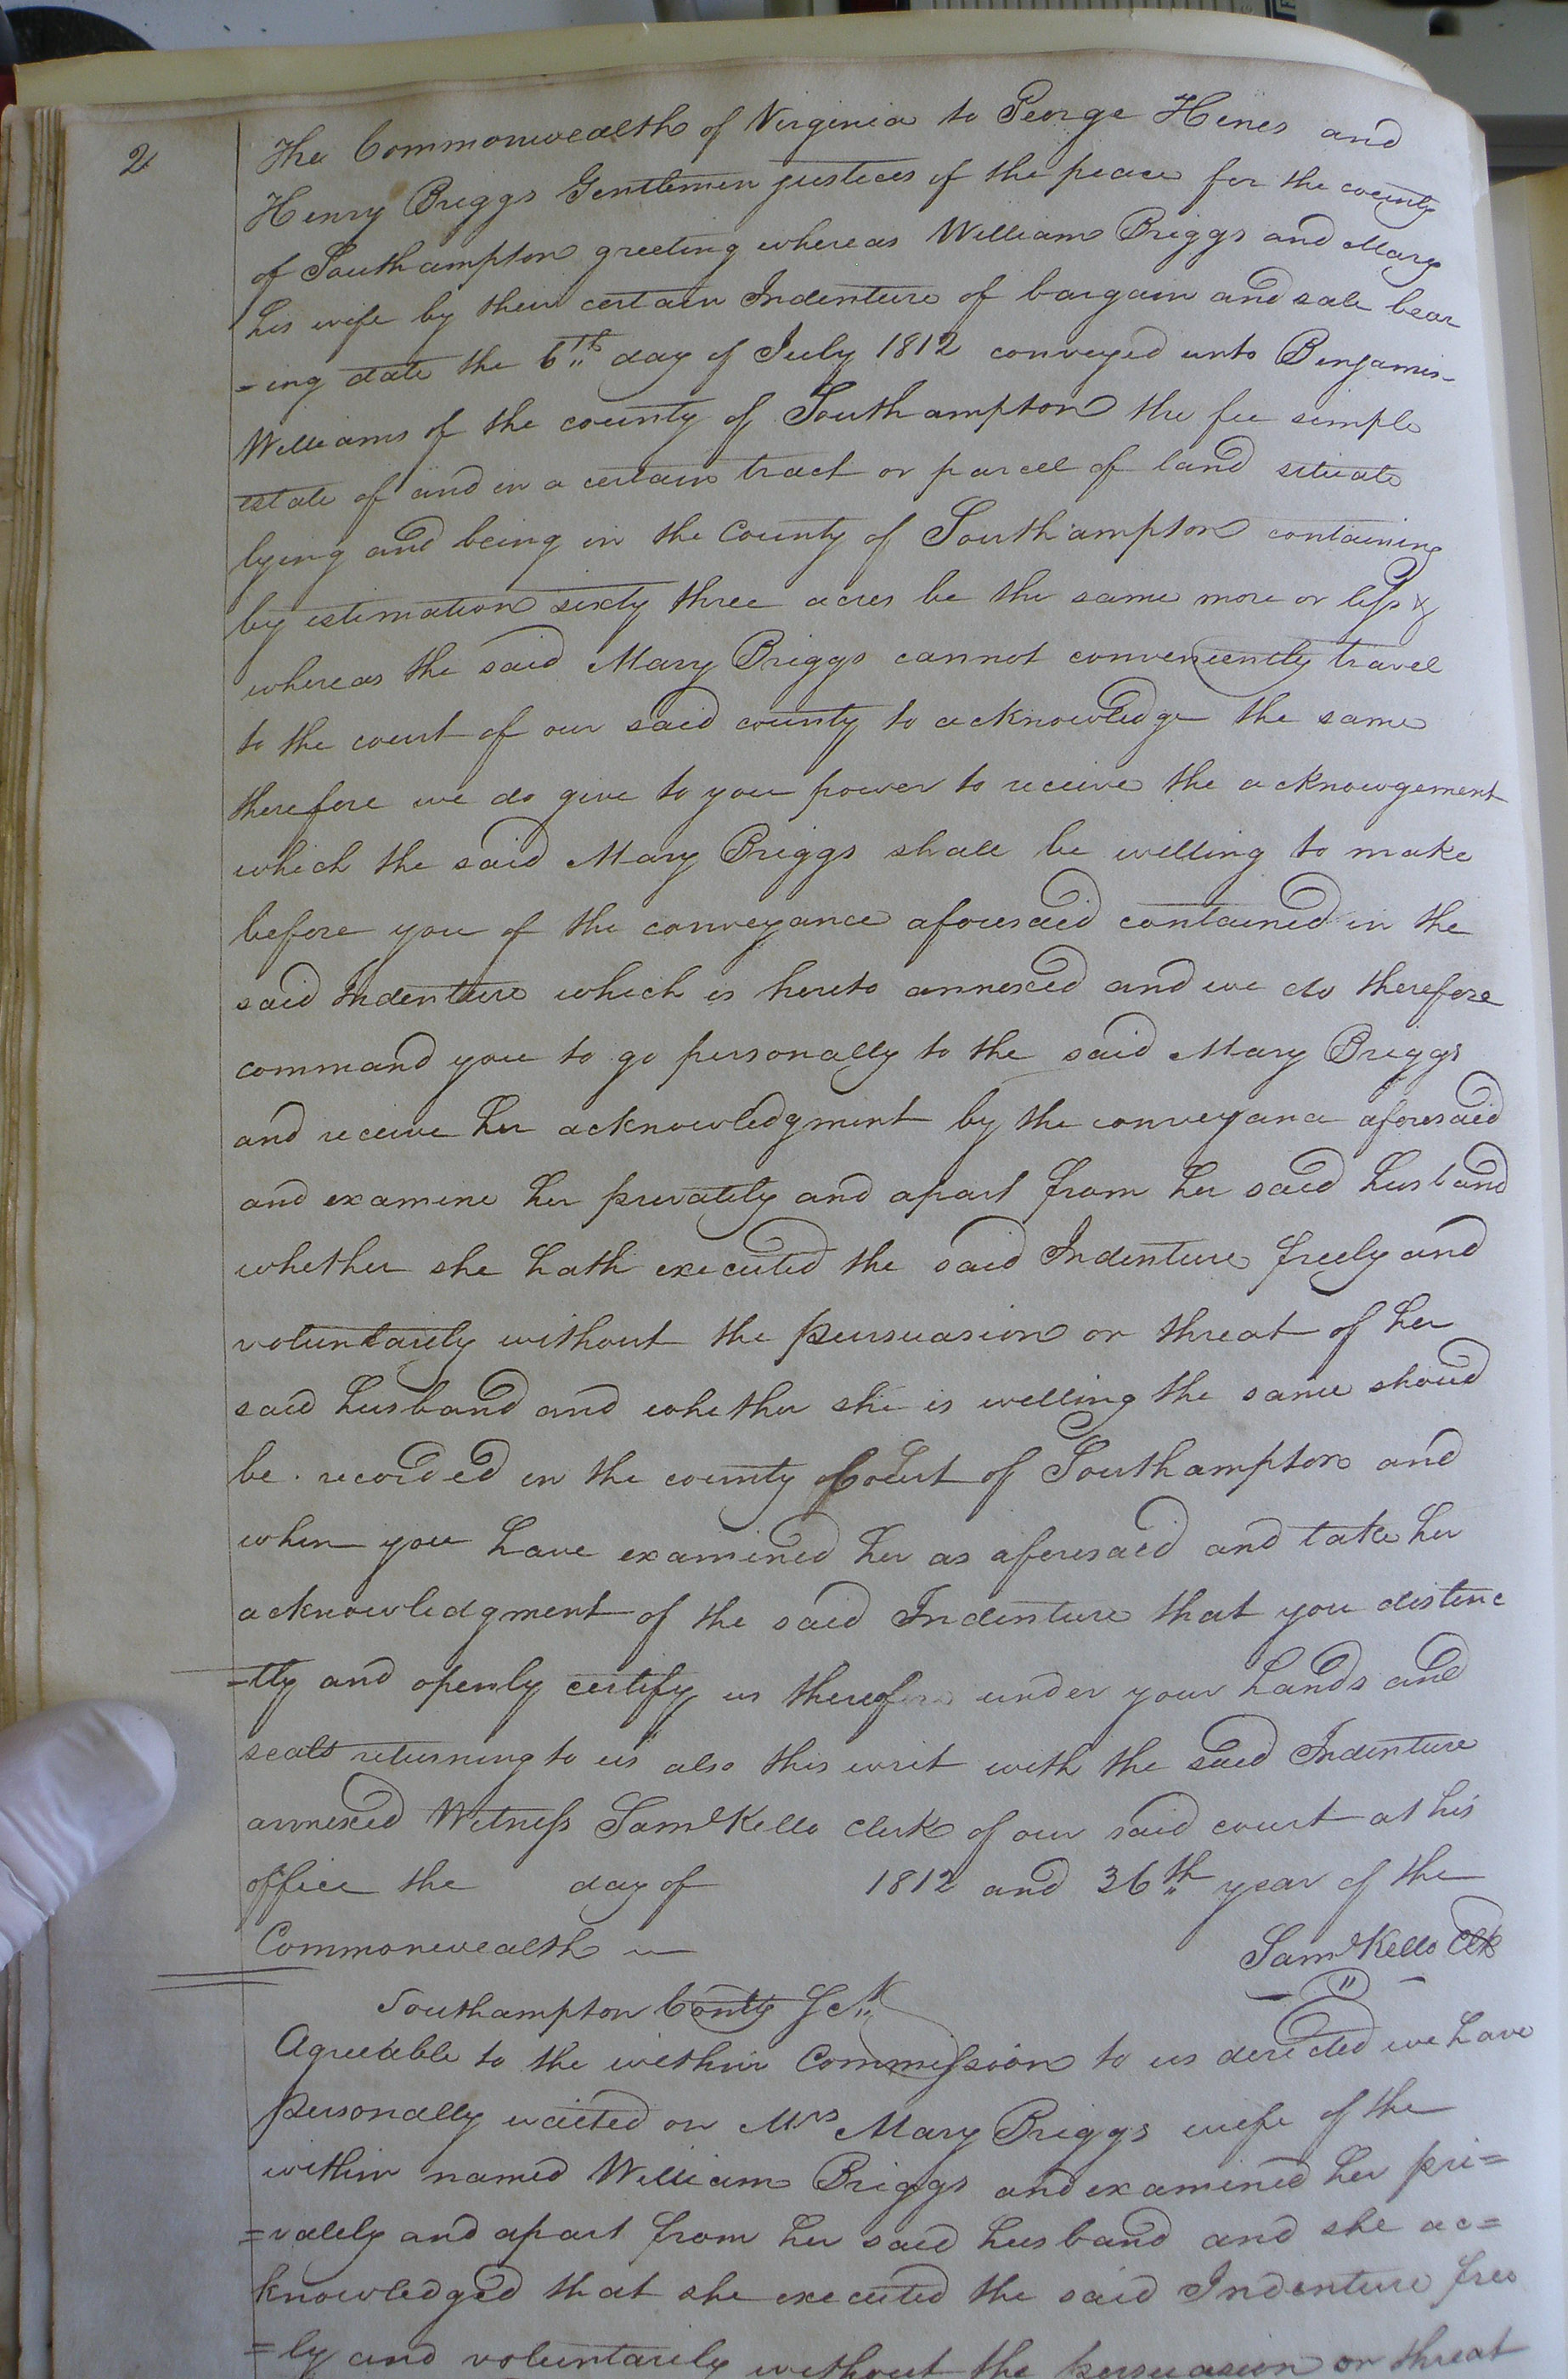 2
The Commonwealth of Virginia to George Hines and
Henry Briggs Gentlemen justices of the peace for the county
of Southampton greeting whereas William Briggs and Mary
his wife by their certain Indenture of bargain and sale bear
=ing date the 6th day of July 1812 conveyed unto Benjamin
Williams of the county of Southampton the fee simple
estate of and in a certain tract or parcel of land situate
lying and being in the County of Southampton containing
by estimation sixty three acres be the same more or less &
whereas the said Mary Briggs cannot conveniently travel
to the court of our said county to acknowledge the same
therefore we do give to you power to receive the acknowgement
which the said Mary Briggs shall be willing to make
before you of the conveyance aforesaid contained in the
said Indenture which is hereto annexed and we do therefore
command you to go personally to the said Mary Briggs
and receive her acknowledgment by the conveyance aforesaid
and examine her privately and apart from her said husband
whether she hath executed the said Indenture freely and
voluntarily without the persuasion or threat of her
said husband and whether she is willing the same shoud
be recorded in the county Court of Southampton and
when you have examined her as aforesaid and take her
acknowledgment of the said Indenture that you distinc
=tly and openly certify us therefore under your hands and
seals returning to us also this writ with the said Indenture
annexed Witness Saml Kello clerk of our said court at his
office the day of 1812 and 36th year of the
Commonwealth
Saml Kello Clk
Southampton County Sct
Agreeable to the within Commission to us directed we have
personally waited on Mrs Mary Briggs wife of the
within named William Briggs and examined her pri=
=vately and apart from her said husband and she ac=
knowledged that she executed the said Indenture free
=ly and voluntarily without the persuasion or threat